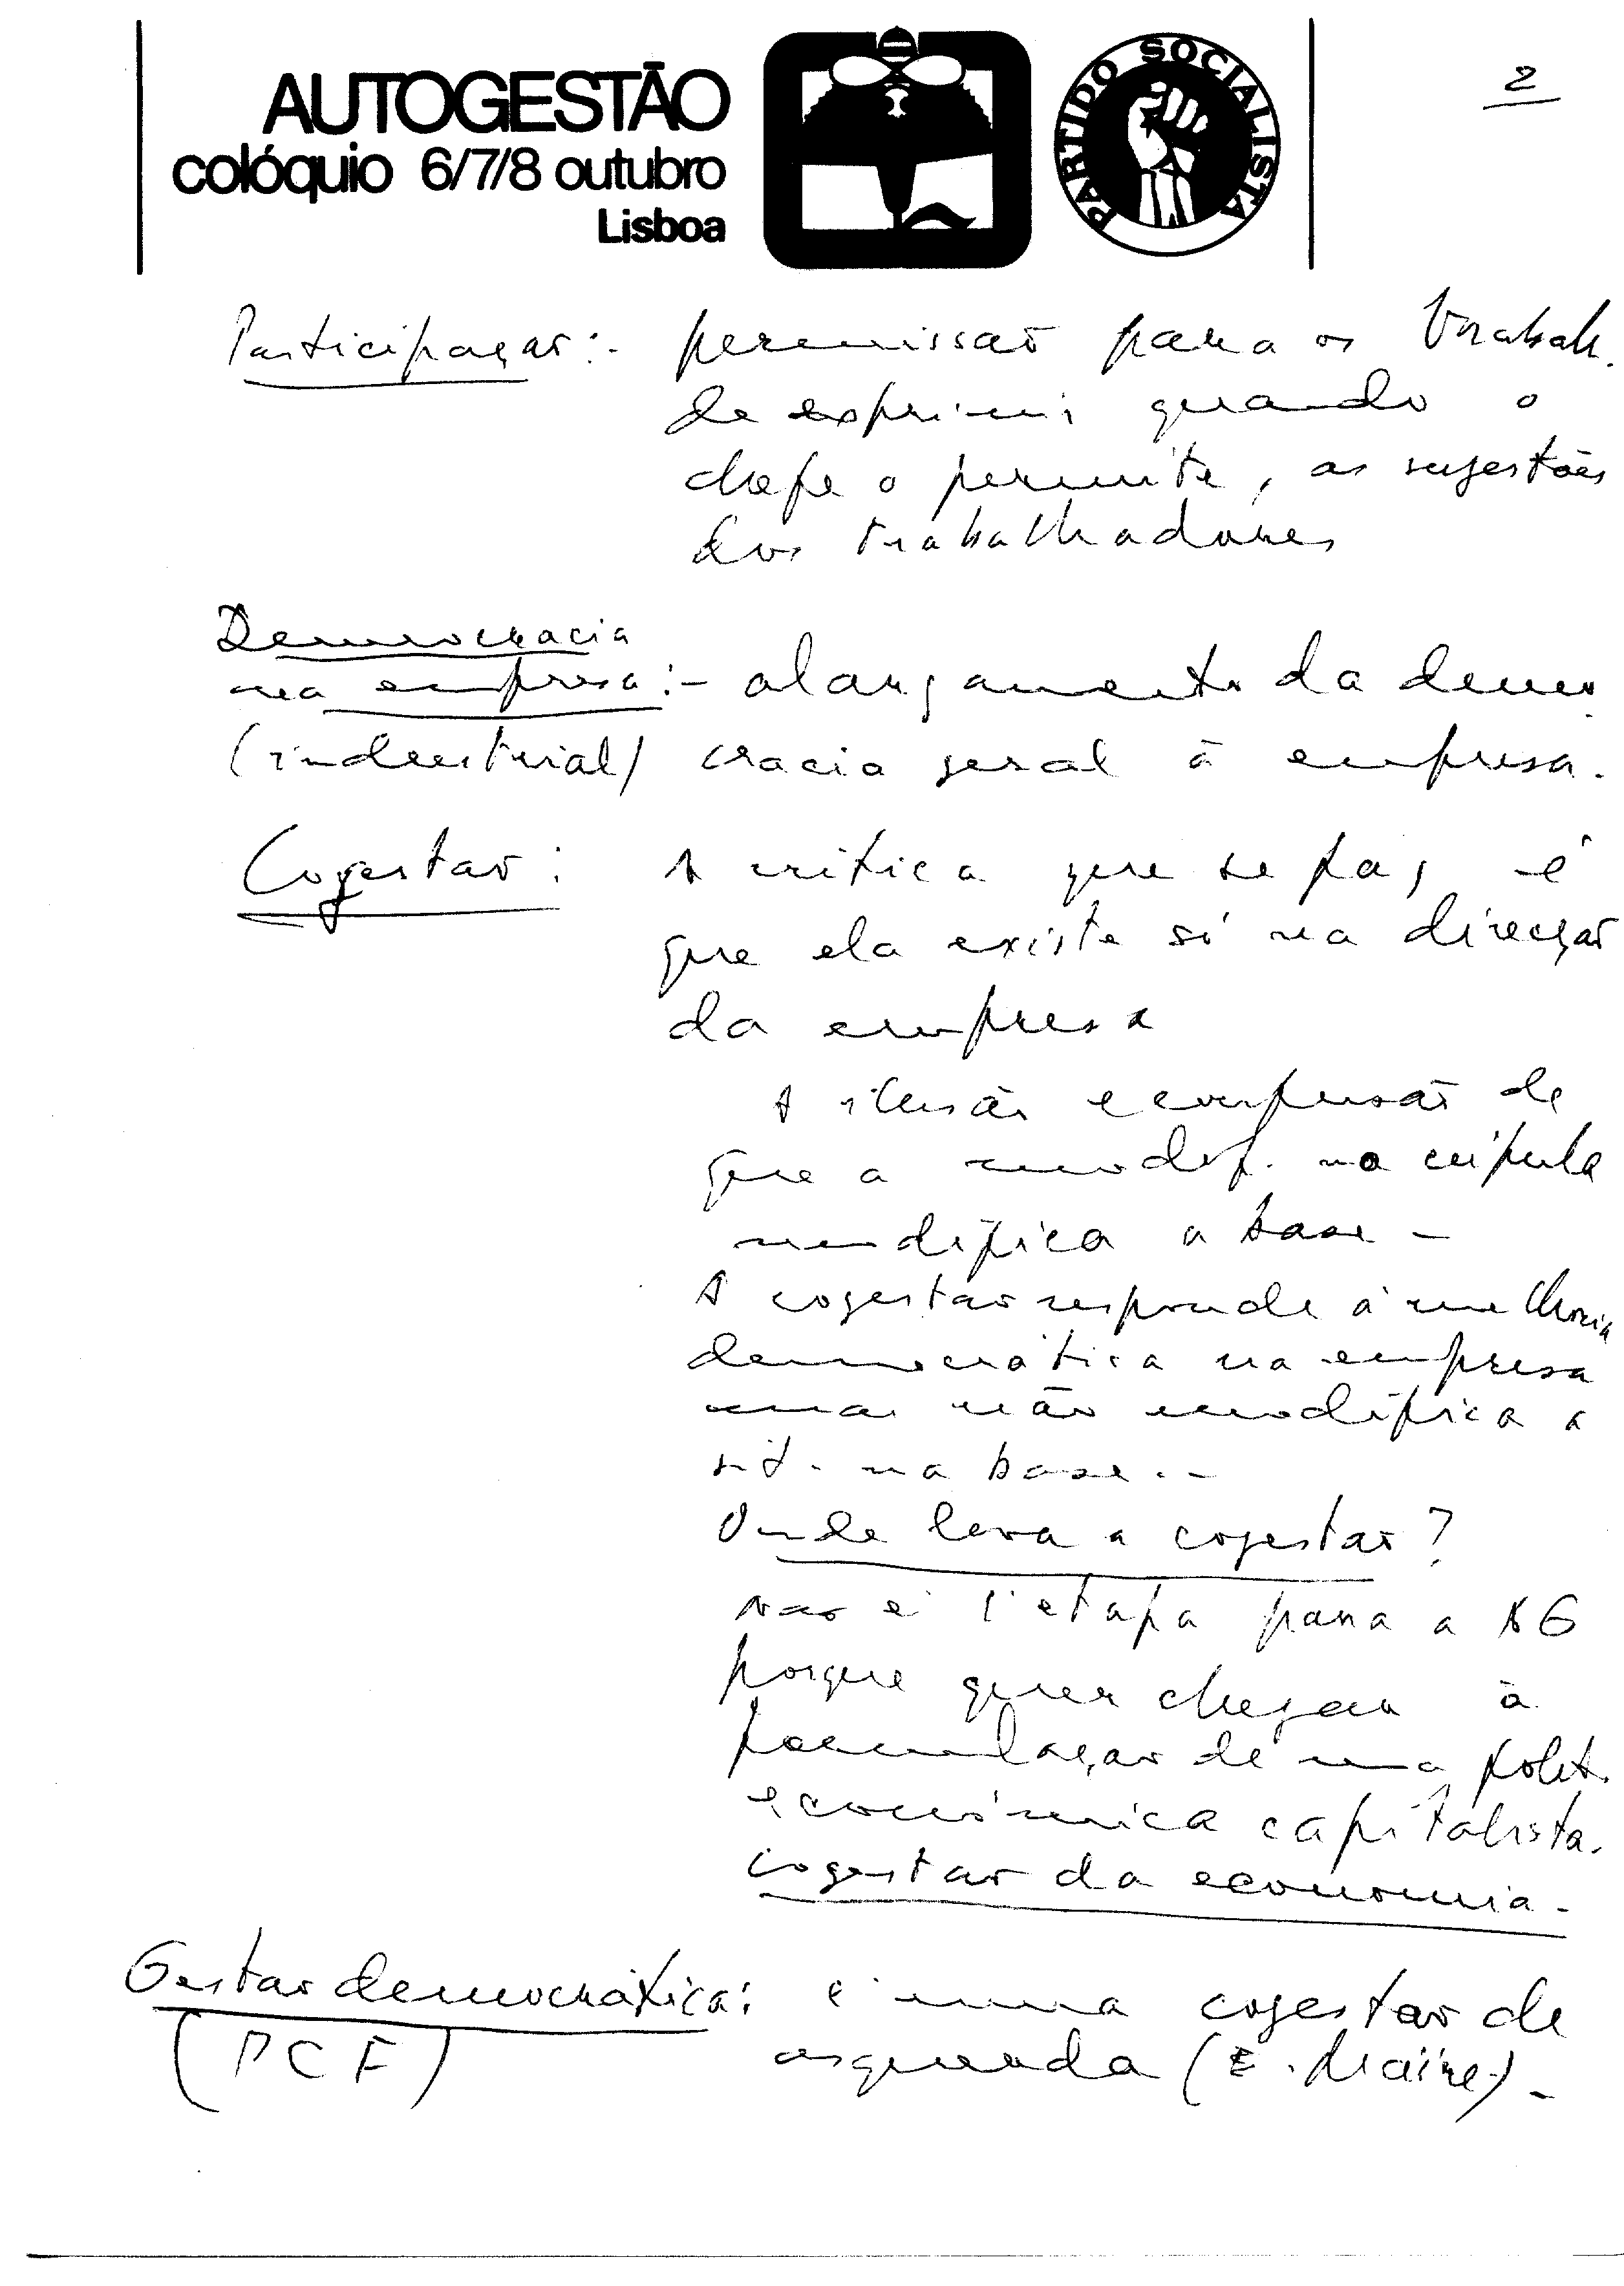 AUTOGESTÃO
colóquio 6/7/8 outubro
Lisboa
PARTIDO SOCIALISTA
2
Participação:- permissão para os trabalh.
de exprimir quando o
chefe o permite, as sugestões
dos trabalhadores
Democracia
na empresa:- alargamento da demo
(industrial) cracia geral à empresa.
Cogestão: A crítica que se faz é
que ela existe só na direcção
da empresa
A ilusão e confusão de
que a modif. na cúpula
modifica a base -
A cogestão responde à melhoria
democrática na empresa
mas não modifica a
sit. na base.-
Onde leva a cogestão?
não é 1ª etapa para a AG
porque quer chegar à
formulação de uma polít.
económica capitalista.
cogestão da economia.
Gestão democrática: é uma cogestão de
(PCF) esquerda (E. Maire).